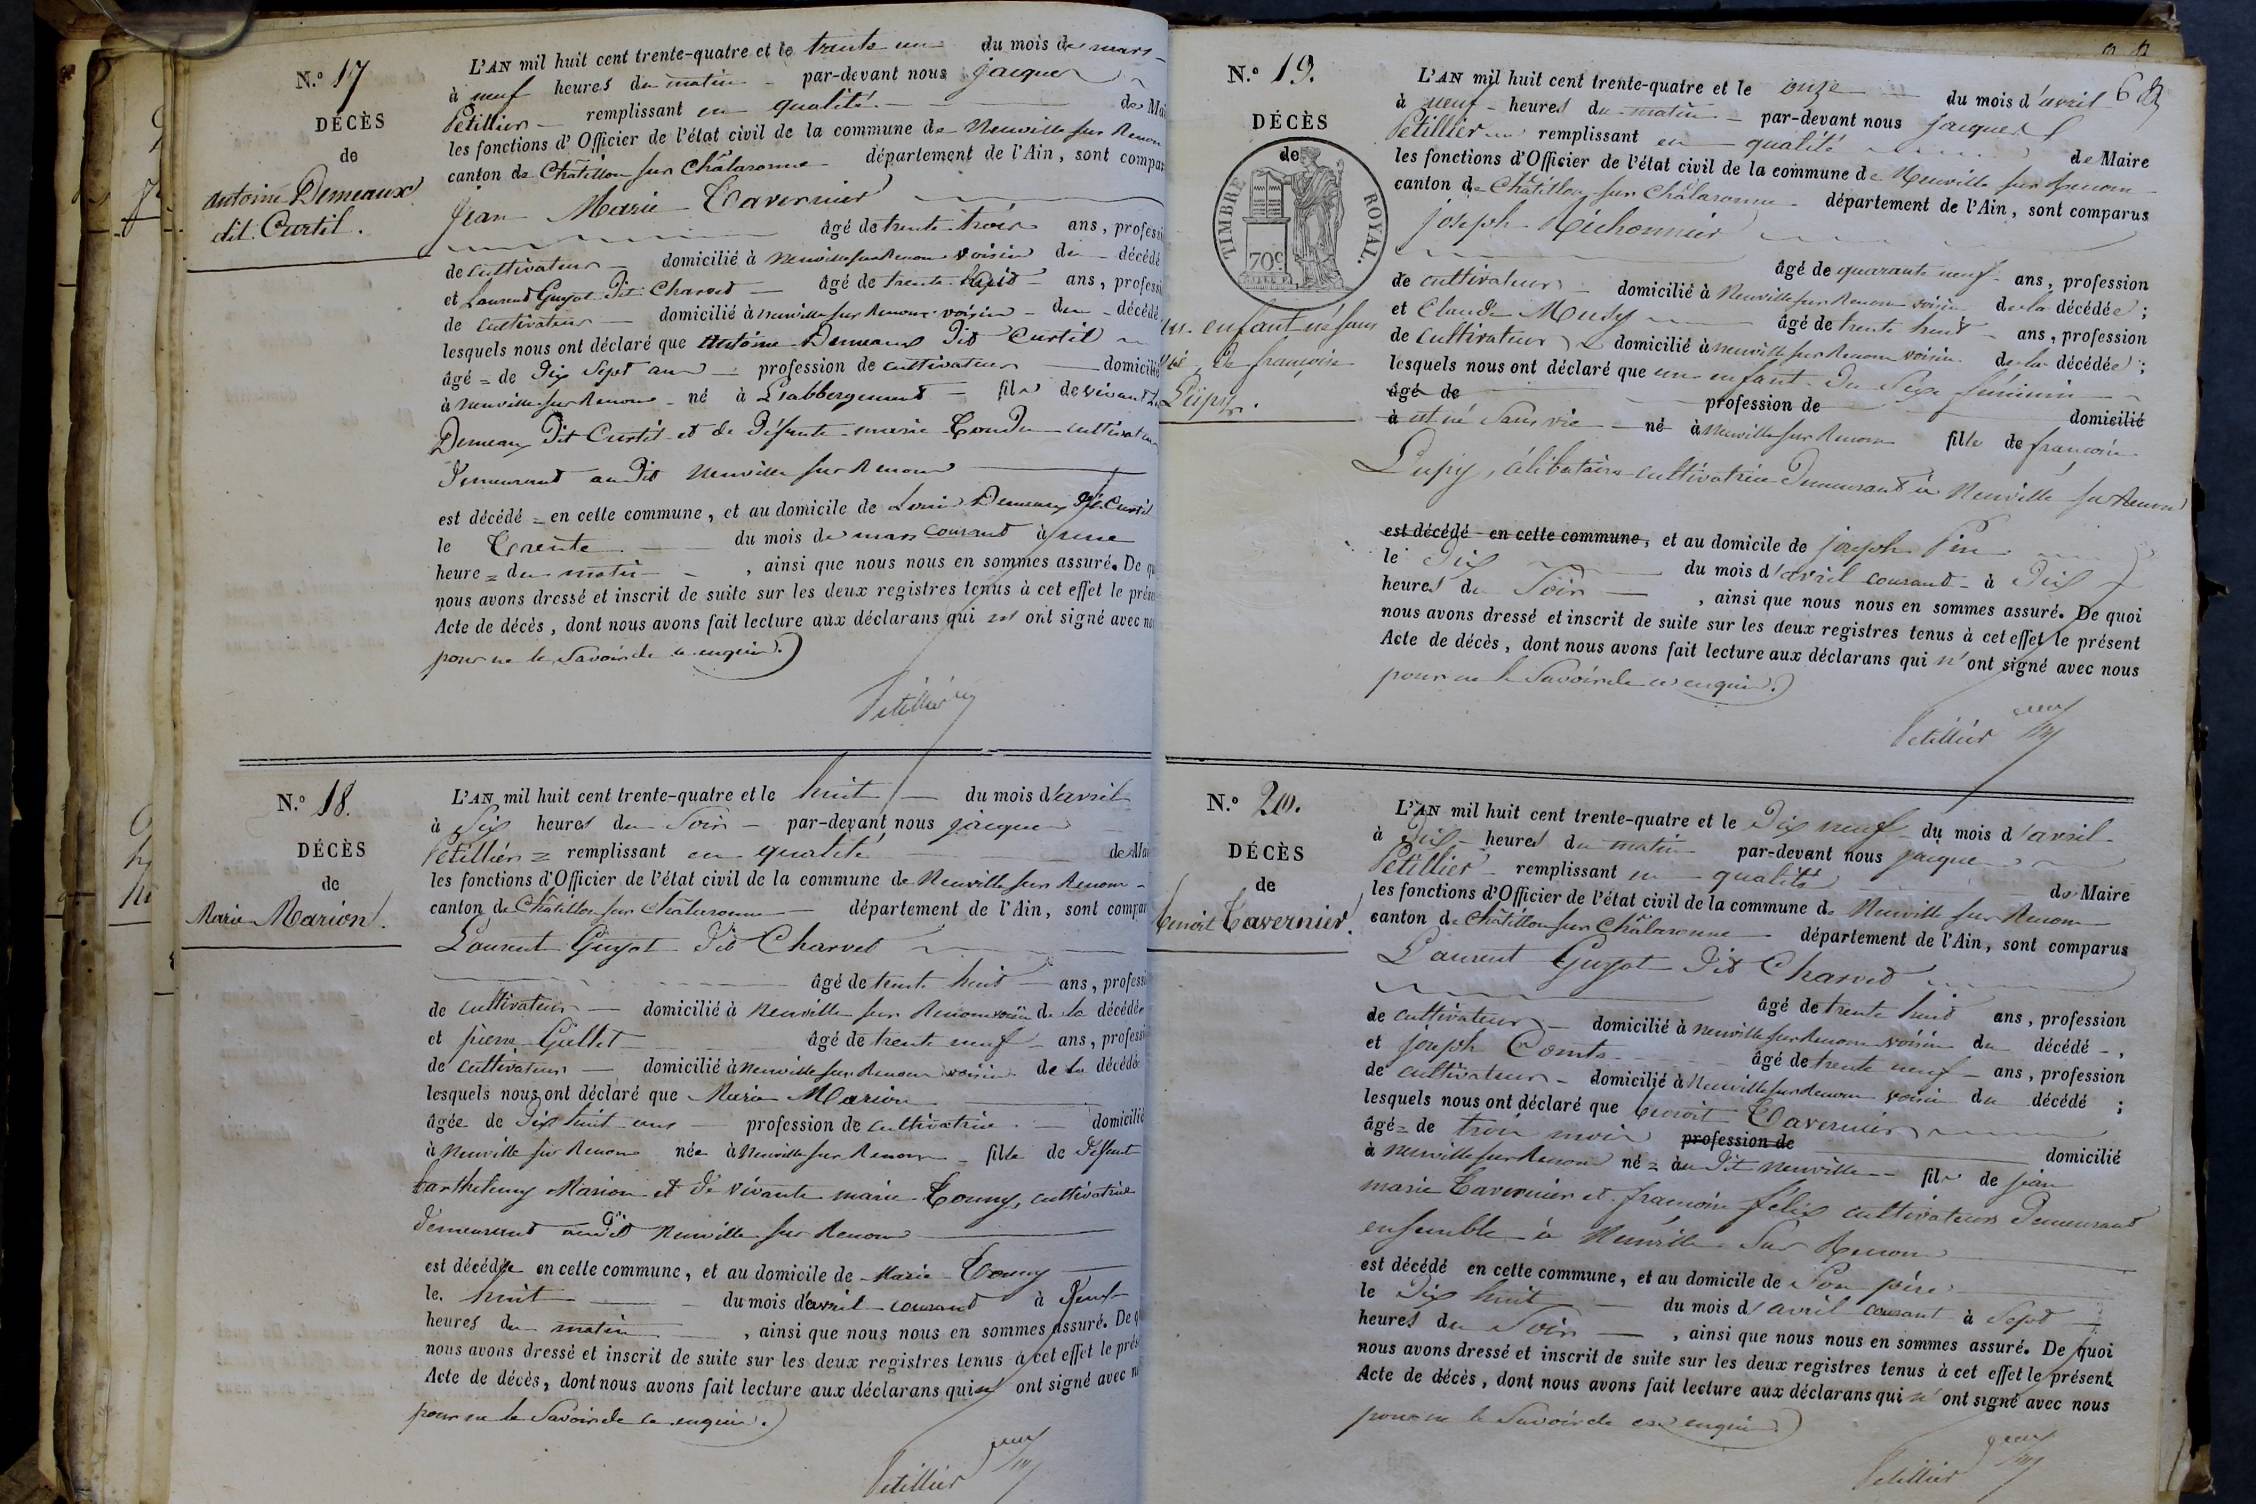 N.º 17
DÉCÈS
de
Antoine Demeaux
dit Curtil.
L'AN mil huit cent trente-quatre et le trente un du mois de mars
à neuf heures du matin par-devant nous jacques
Petillier remplissant en qualité de Mai
les fonctions d'Officier de l'état civil de la commune de Neuville sur Renom
canton de Châtillon sur Châlaronne département de l'Ain, sont compar
jean Marie Tavernier
âgé de trente trois ans, professi
de cultivateur domicilié à neuville sur Renom voisin du décédé
et Laurent Guyot dit Charvet âgé de trente huit ans, professi
de cultivateur domicilié à neuville sur Renom voisin du décédé
lesquels nous ont déclaré que Antoine Demeaux dit Curtil
âgé de dix sept ans profession de cultivateur domicilié
à neuville sur Renom né à L'abbergement fils de vivant
Demeaux dit Curtil et de défunte marie cultivateur
demeurant au dit Neuville sur Renom
est décédé en cette commune, et au domicile de Louis Demeaux dit Curtil
le trente du mois de mars courant à une
heure du matin, ainsi que nous nous en sommes assuré. De qu
nous avons dressé et inscrit de suite sur les deux registres tenus à cet effet le prése
Acte de décès, dont nous avons fait lecture aux déclarans qui n' ont signé avec no
pour ne le savoir de ce enquis.
Petillier
N.º 18.
DÉCÈS
de
Marie Marion.
L'AN mil huit cent trente-quatre et le huit du mois d'avril
à six heures du soir par-devant nous jacques
Petillier remplissant en qualité de Mai
les fonctions d'Officier de l'état civil de la commune de Neuville sur Renom
canton de Châtillon sur Châlaronne département de l'Ain, sont compar
Laurent Guyot dit Charvet
âgé de trente huit ans, professi
de cultivateur domicilié à Neuville sur Renom voisin de la décédée
et pierre Gullet âgé de trente neuf ans, professi
de cultivateur domicilié à Neuville sur Renom voisin de la décédé
lesquels nous ont déclaré que Marie Marion
âgée de dix huit ans profession de cultivatrice domicilié
à Neuville sur Renom née à Neuville sur Renom fille de défunt
barthelemy Marion et de vivante marie Tonny, cultivatrice
demeurant au dit Neuville sur Renom
est décédée en cette commune, et au domicile de Marie Tonny
le huit du mois d'avril courant à neuf
heures du matin, ainsi que nous nous en sommes assuré. De q
nous avons dressé et inscrit de suite sur les deux registres tenus à cet effet le prés
Acte de décès, dont nous avons fait lecture aux déclarans qui n' ont signé avec n
pour ne le savoir de ce enquis.
Petillier
6
N.º 19.
DÉCÈS
de
TIMBRE ROYAL.
70c
un enfant né sans
vie de françoise
Dupuy.
L'AN mil huit cent trente-quatre et le onze du mois d'avril
à neuf heures du matin par-devant nous jacques
Petillier remplissant en qualité de Maire
les fonctions d'Officier de l'état civil de la commune de Neuville sur Renom
canton de Châtillon sur Châlaronne département de l'Ain, sont comparus
joseph Michonnier
âgé de quarante neuf ans, profession
de cultivateur domicilié à Neuville sur Renom voisin de la décédée;
et Claude Musy âgé de trente huit ans, profession
de cultivateur domicilié à neuville sur Renom voisin de la décédée;
lesquels nous ont déclaré que un enfant du sexe féminin
âgé de profession de domicilié
à est né sans vie né à neuville sur Renom fille de françoise
Dupuy, célibataire cultivatrice demeurant à Neuville sur Renom
est décédé en cette commune, et au domicile de joseph Pin
le dix du mois d'avril courant à dix
heures du soir, ainsi que nous nous en sommes assuré. De quoi
nous avons dressé et inscrit de suite sur les deux registres tenus à cet effet le présent
Acte de décès, dont nous avons fait lecture aux déclarans qui n' ont signé avec nous
pour ne le savoir de ce enquis.
Petillier
N.º 20.
DÉCÈS
de
benoit Tavernier.
L'AN mil huit cent trente-quatre et le dix neuf du mois d'avril
à dix heures du matin par-devant nous jacques
Petillier remplissant en qualité de Maire
les fonctions d'Officier de l'état civil de la commune de Neuville sur Renom
canton de Châtillon sur Châlaronne département de l'Ain, sont comparus
Laurent Guyot dit Charvet
âgé de trente huit ans, profession
de cultivateur domicilié à Neuville sur Renom voisin du décédé,
et joseph Comte âgé de trente neuf ans, profession
de cultivateur domicilié à Neuville sur Renom voisin du décédé;
lesquels nous ont déclaré que benoit Tavernier
âgé de trois mois profession de domicilié
à neuville sur Renom né au dit neuville fils de jean
marie Tavernier et françoise félix cultivateurs demeurant
ensemble à Neuville sur Renom
est décédé en cette commune, et au domicile de son père
le dix huit du mois d'avril courant à sept
heures du soir, ainsi que nous nous en sommes assuré. De quoi
nous avons dressé et inscrit de suite sur les deux registres tenus à cet effet le présent
Acte de décès, dont nous avons fait lecture aux déclarans qui n' ont signé avec nous
pour ne le savoir de ce enquis
Petillier